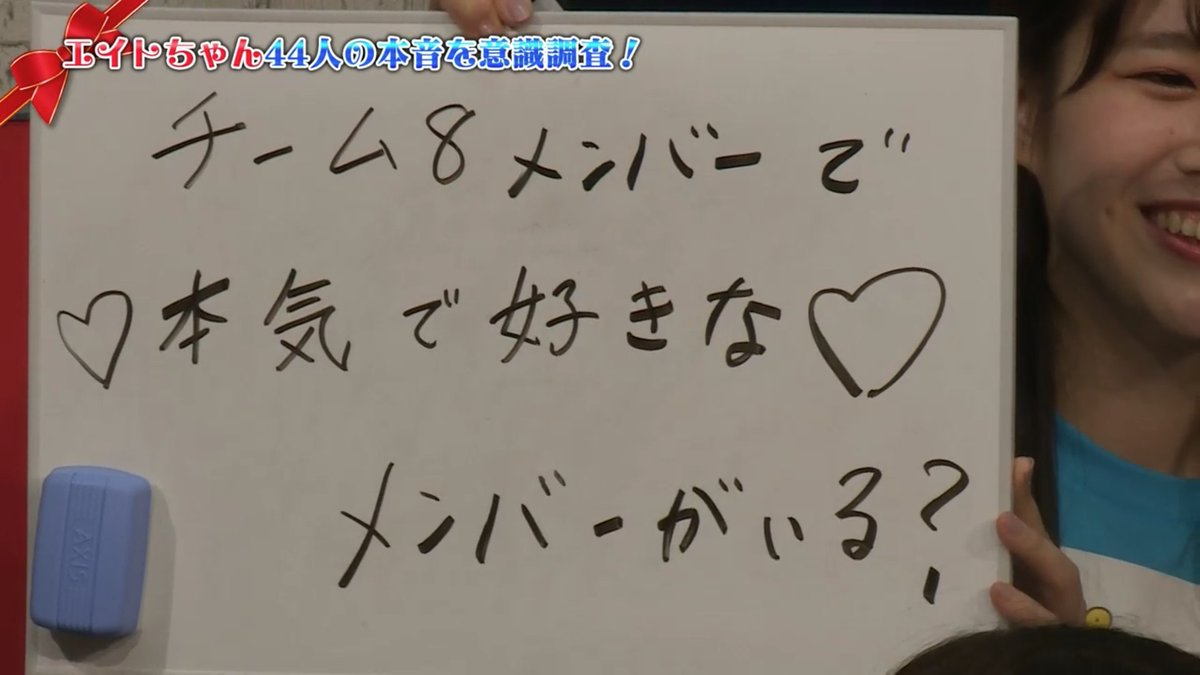 エイトちゃん44人の本音を意識調査！
チーム8メンバーで
♡本気で好きな♡
メンバーがいる?
AXIS